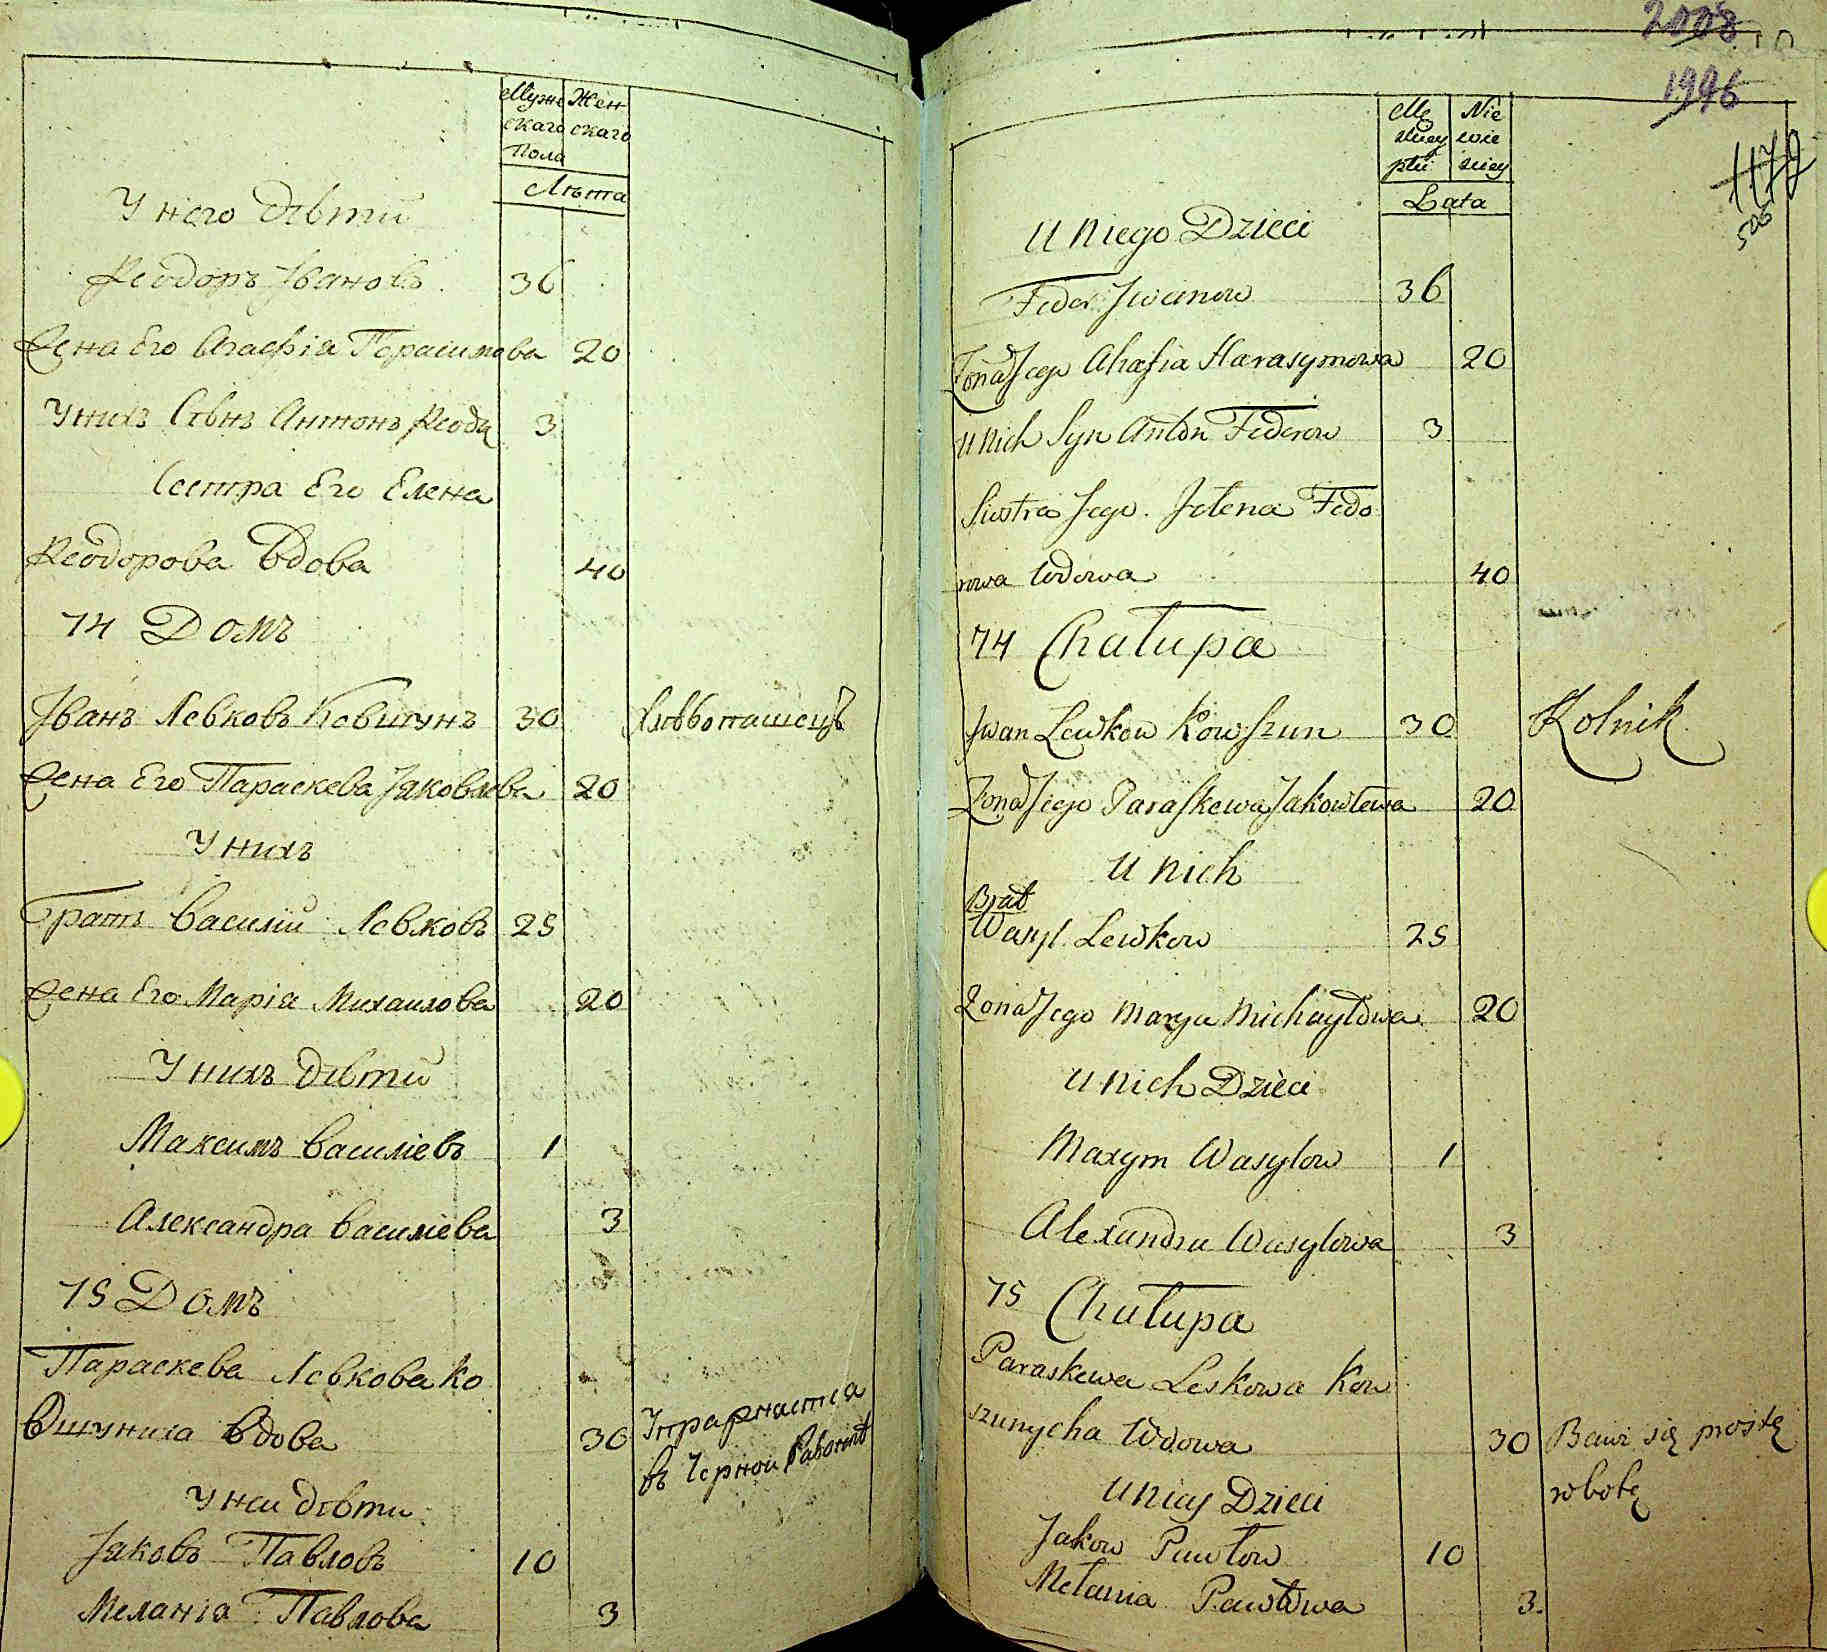 Муже Жен-
скаго скаго
Пола
Лѣта
У него дѣти
Феодоръ Івановъ 36
Жена Его Агафія Герасимова 20
У нихъ Сынъ Антонъ Феодо 3
Сестра Его Елена
Феодорова Вдова 40
74 Домъ
Іванъ Левковъ Ковшунъ 30 Хлѣбопашецъ
Жена Его Параскева Јаковлева 20
У нихъ
Братъ Василий Левковъ 25
Жена Его Марія Михаилова 20
У нихъ дѣти
Максимъ Василіевъ 1
Александра Василіева 3
75 Домъ
Параскева Левкова Ко
вшуниха Вдова 30 Упражнается
въ Черной Работѣ
У неи дѣти
Јаковъ Павловъ 10
Меланіа Павлова 3
2008
1996
1172
506
Mę Nie
skiey wie
płci skiey
Lata
U Niego Dzieci
Fedor Jwanow 36
Żona Jego Ahafia Harasymowa 20
U nich Syn Anton Fedorow 3
Siostra Jego Jelena Fedo
rowa Wdowa 40
74 Chałupa
Jwan Lewkow Kowszun 30 Rolnik
Żona Jego Paraskewa Jakowlewa 20
U nich
Brat
Wasyl Lewkow 25
Żona Jego Marya Michayłowa 20
U nich Dzieci
Maxym Wasylow 1
Alexandra Wasylowa 3
75 Chałupa
Paraskewa Leskowa Kow
szunycha Wdowa 30 Bawi się prostą
robotą
U niey Dzieci
Jakow Pawłow 10
Melania Pawłowa 3.